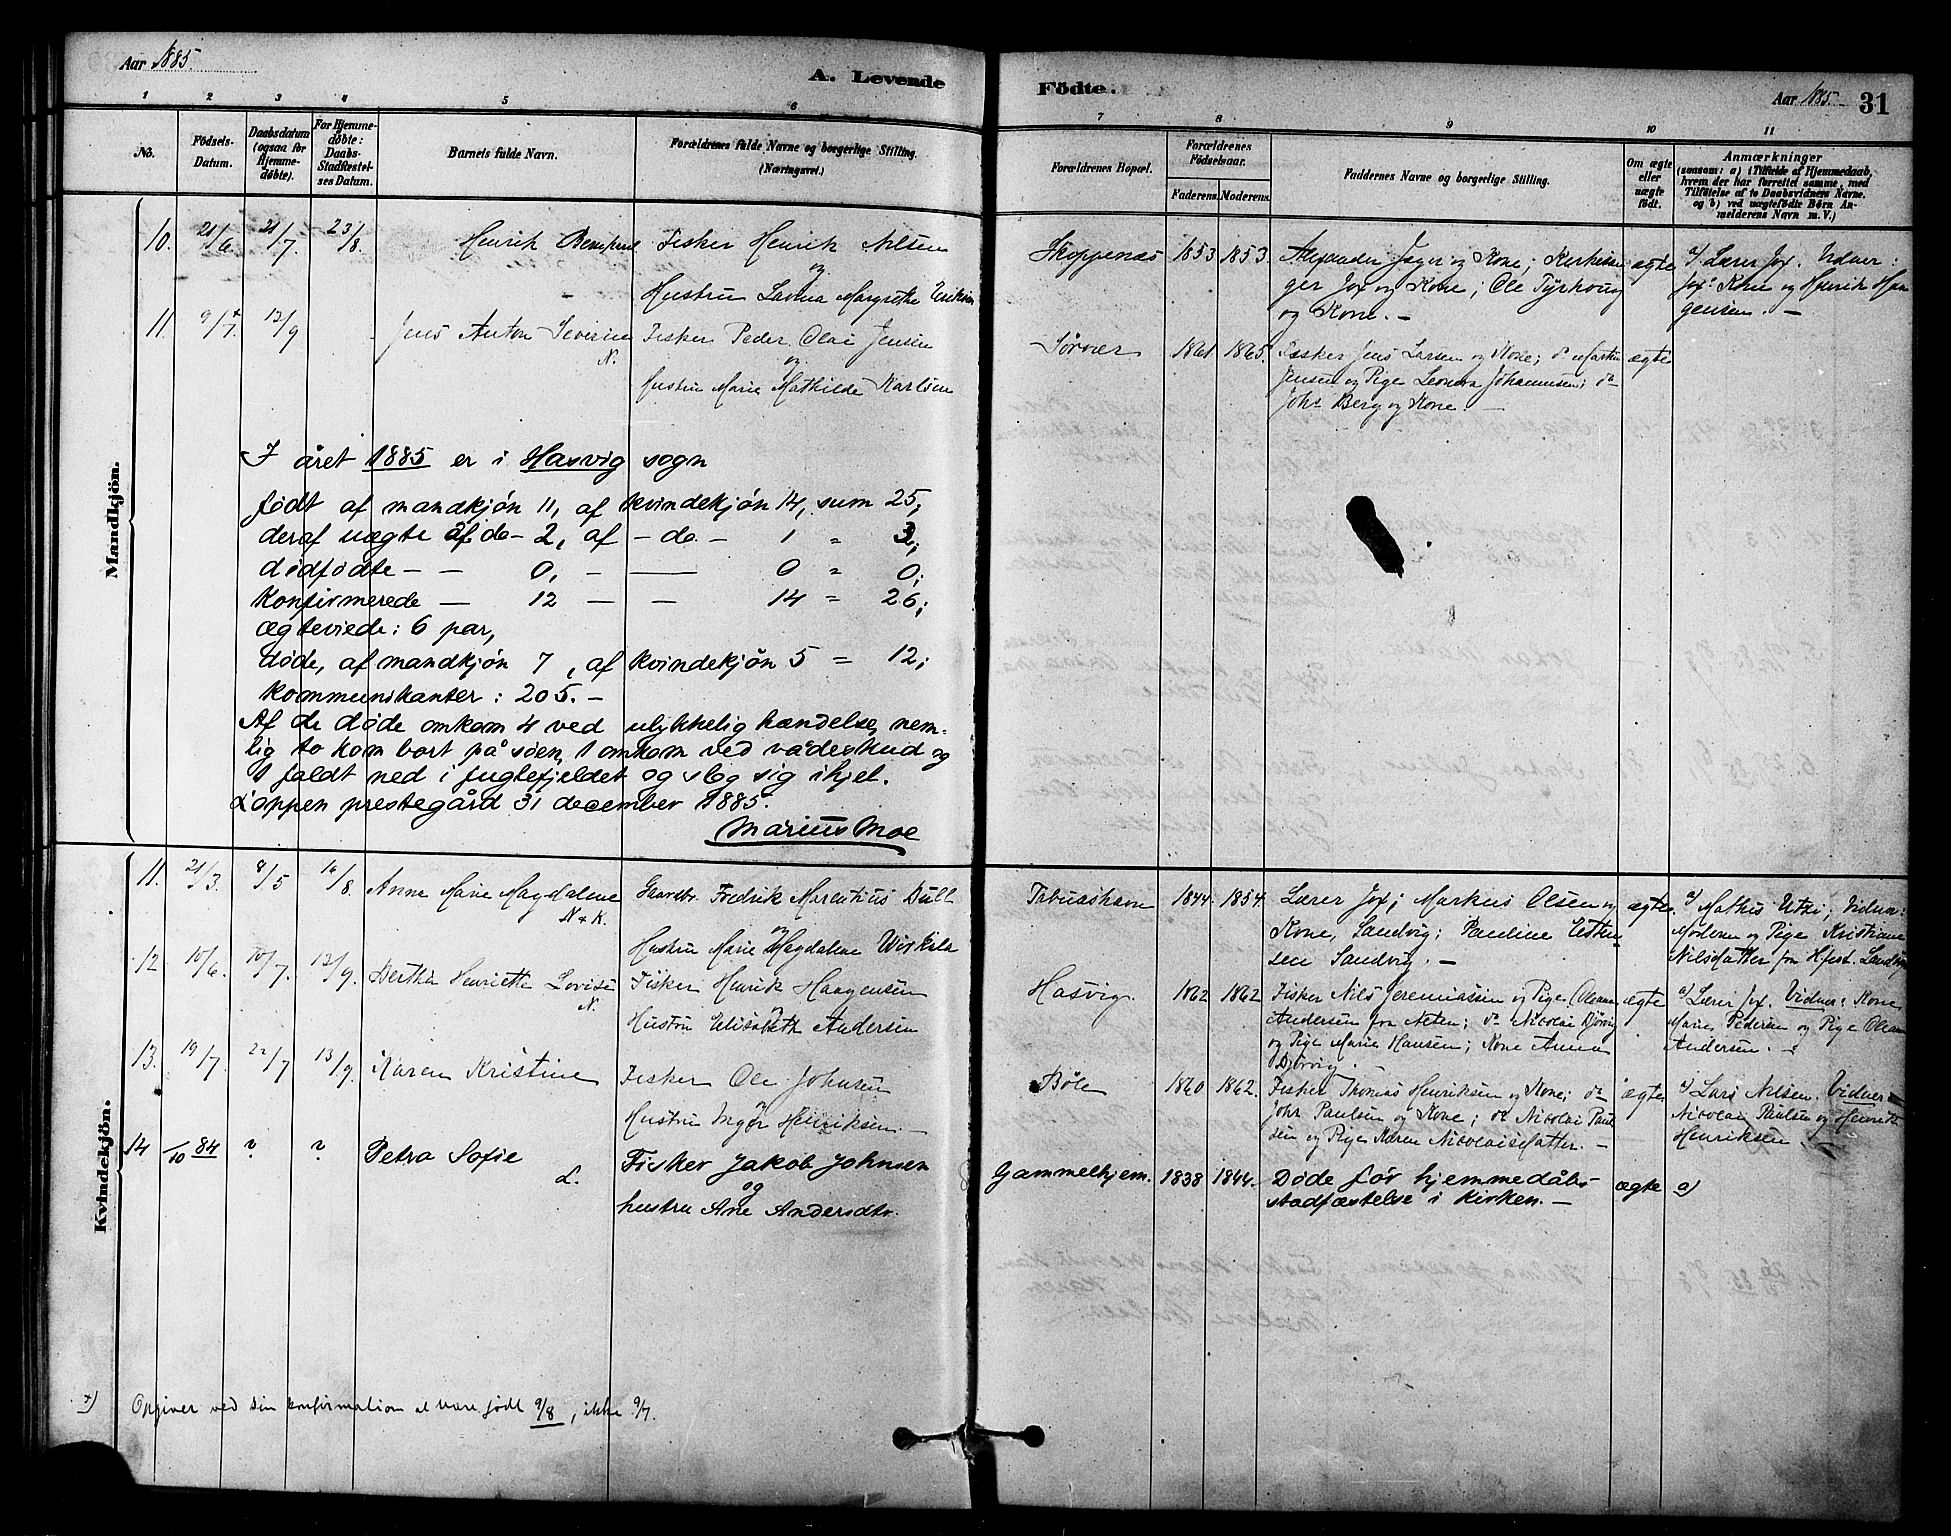 Aar 1885.
A. Levende
Födte.
Aar 1885.
31
1 2 3 4 5 6 7 8 9 10 11
No.
Födsels-
Datum.
Daabsdatum
(ogsaa for
Hjemme-
döbte).
For Hjemme-
döbte:
Daabs-
Stadfæstel-
ses Datum.
Barnets fulde Navn.
Forældrenes fulde Navne og borgerlige Stilling.
(Næringsvei.)
Forældrenes Bopæl.
Forældrenes
Födselsaar.
Faderens. Moderens.
Faddernes Navne og borgerlige Stilling.
Om ægte
eller
uægte
födt.
Anmærkninger
(saasom: a) i Tilfælde af Hjemmedaab,
hvem der har forrettet samme, med
Tilföielse af to Daabsvidners Navne.
og b) ved uægtefödte Börn An-
melderens Navn m. V.)
Mandkjön.
10. 21/6 21/7. 23/8. Henrik Fisker Henrik Nilsen
og
Hustru Lavina Margrethe Eriksen
Skoppenæs 1853 1853. Alexander Jæger og Kone; Kirkesan
ger Jox og Kone; Ole Tyrhoug
og Kone. -
ægte
a) Lærer Jox. Vidner:
Jox' Kone og Henrik Haa
gensen. -
11. 9/7. + 12/9 Jens Anton Severin
N.
Fisker Peder Olai Jensen
og
Hustru Marie Mathilde Karlsen
Sørvær 1861 1865. Fisker Jens Larsen og Kone; do Martin
Jensen og Pige Leonora Johannesen; do
Johs Berg og Kone. -
ægte
I året 1885 er i Hasvig sogn
født af mandkjøn 11, af kvindekjøn 14, sum 25,
deraf uægte af do - 2, af - do. - 1 " 3;
dødfødte - - 0, - — 0 " 0;
konfirmerede - 12 - - 14 = 26;
ægteviede: 6 par,
døde, af mandkjøn 7, af kvindekjøn 5 = 12;
kommunikanter: 205. -
Af de døde omkom 4 ved ulykkelig hændelse, nem-
lig to kom bort på søen, 1 omkom ved vådeskud og
1 faldt ned i fuglefjeldet og slog sig ihjel.
Loppen prestegård 31 december 1885.
Marius Moe
Kvindekjön.
11. 21/3. 8/5 16/8. Anna Marie Magdalene
N & K.
Gaardbr. Fredrik Marentius Dull
og
Hustru Marie Magdalene Wirkila
1844. 1854. Lærer Jox; Markus Olsen og
Kone, Sandvig; Pauline Esten
sen Sandvig. -
ægte.
a) Mathis Utsi; Vidner:
Moderen og Pige Kristiane
Nilsdatter fra
12 10/6. 10/7. 12/9. Berthe Henriette Lovise
N.
Fisker Henrik Haagensen
og
Hustru Elisabeth Andersen
Hasvig. 1862 1862. Fisker Nils Jeremiassen og Pige Oleana
Andersen fra Neten; do Nicolai Djørvig
og Pige Marie Hansen; Kone Anna
Djørvig.
ægte
a) Lærer Jox. Vidner: Kone
Marie Pedersen og Pige Oleana
Andersen. -
13. 19/7. 22/7 13/9. Karen Kristine
Fisker Ole Johnsen
og
Hustru Inger Henriksen. -
Bøle 1860 1862. Fisker Thomas Henriksen og Kone; do
Johs Paulsen og Kone; do Nicolai Paul
sen og Pige Karen Nicolaisdatter. -
ægte
a) Lars Nilsen. Vidner:
Nicolai Paulsen og Henrik
Henriksen.
14 /10 84 ? ? Petra Sofie
L.
Fisker Jakob Johnsen
og
hustru Ane Andersdtr.
Gammelhjem. 1838 1844. Døde før hjemmedåbs-
stadfæstelse i kirken. -
ægte a)
+) Opgiver ved sin konfirmation at være født 9/8, ikke 9/7.